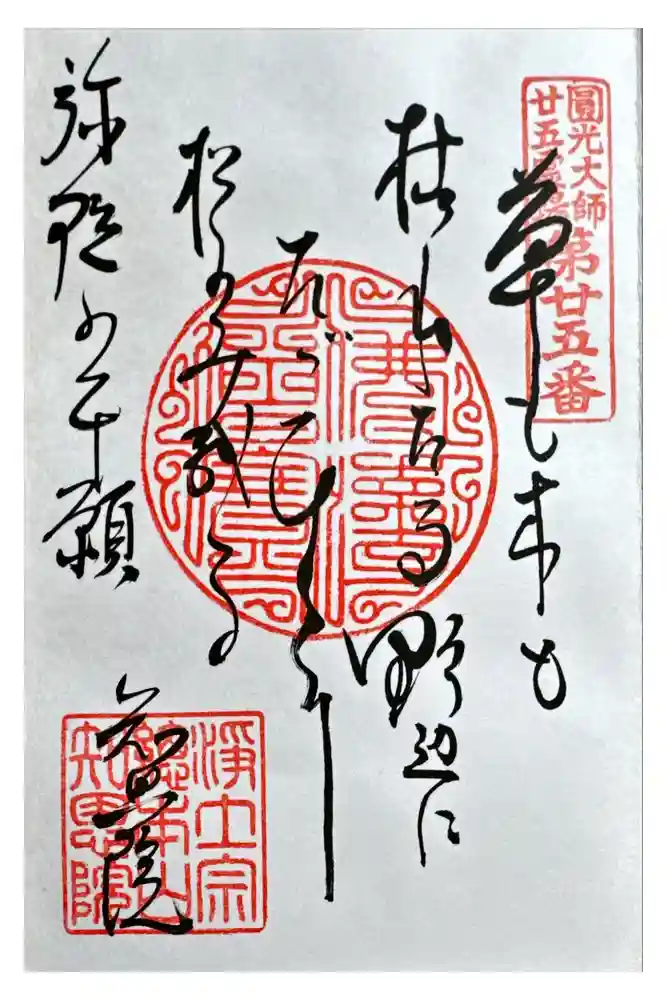 圓光大師
廿五靈場
第廿五番
草も木も
枯れたる野辺に
たゞひとり
松のみ残る
弥陀の本願
知恩院
淨土宗
總本山
知恩院